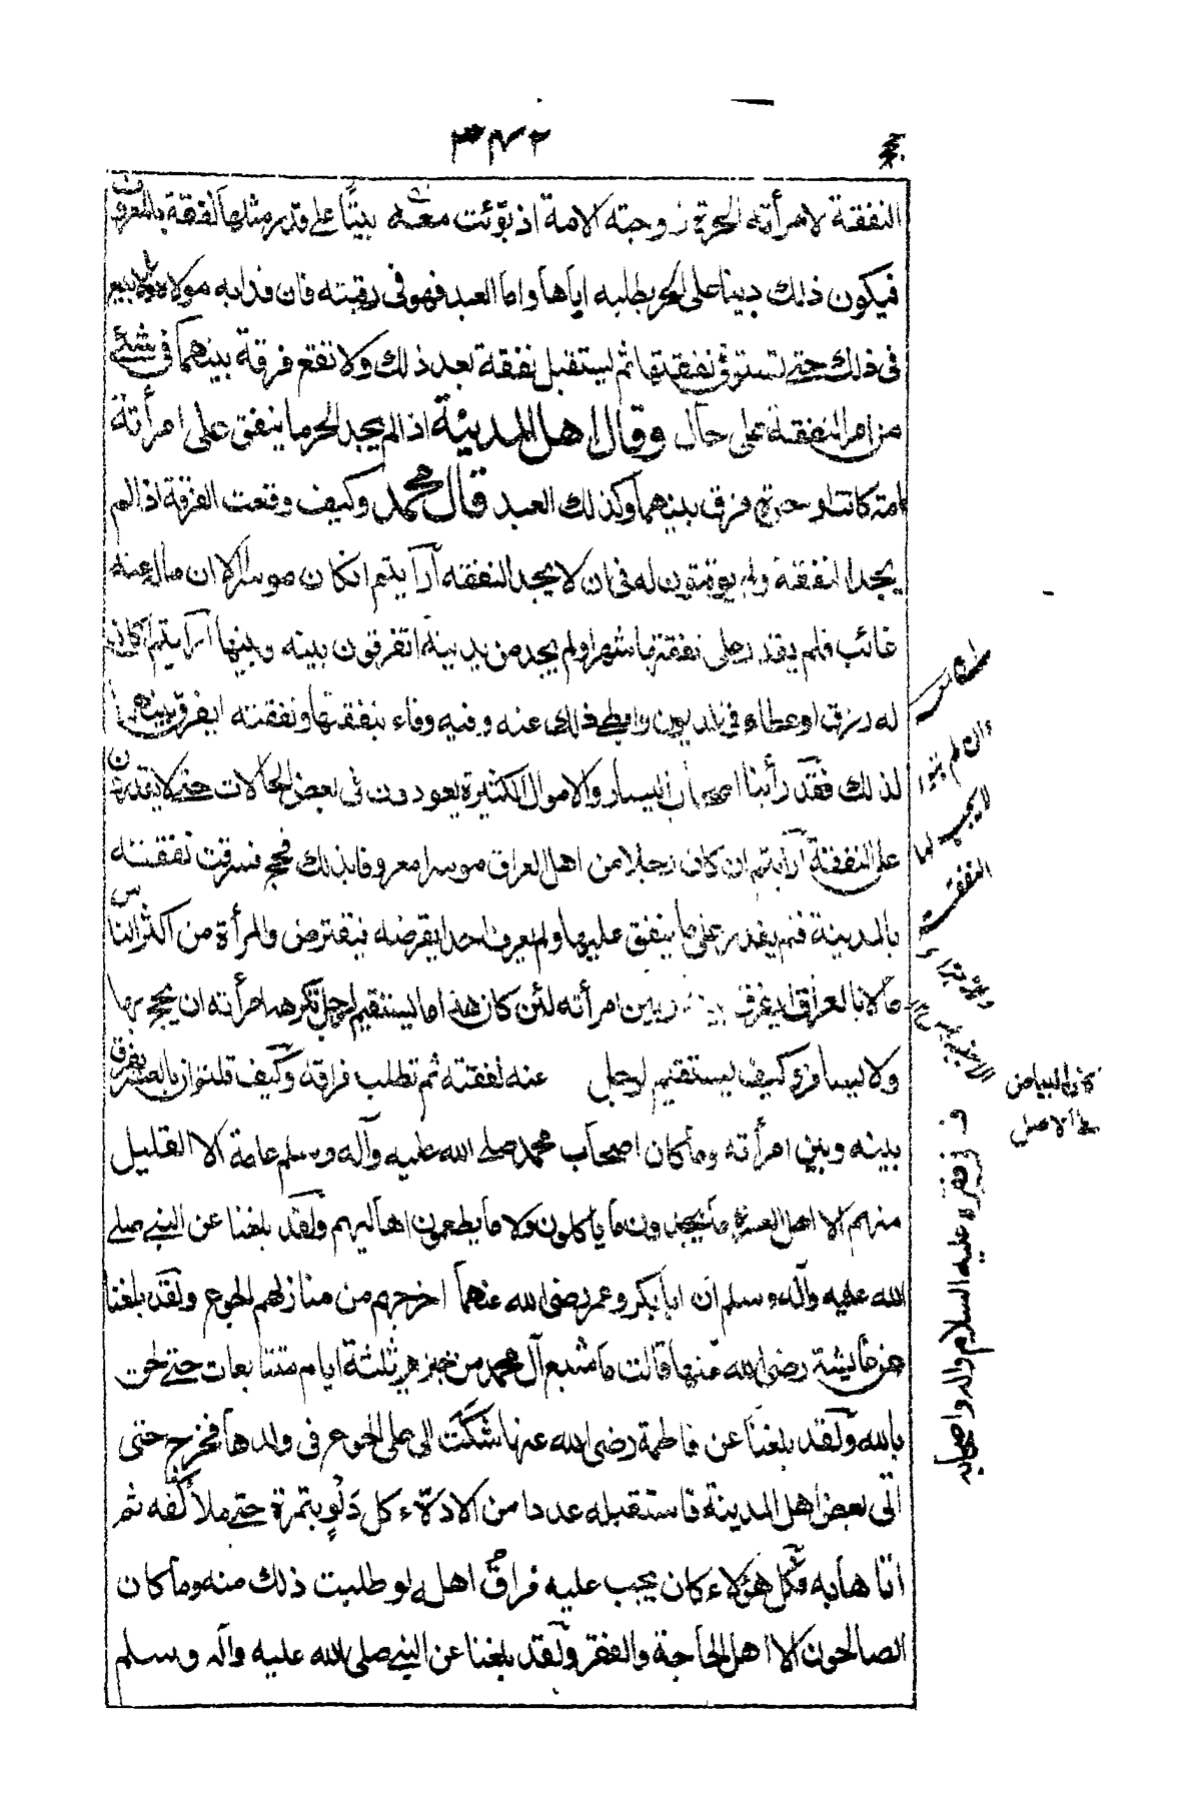 ٣٤٢
النفقة لامرأته الحرة زوجته الامة اذ بوّئت معه بيتًا على قدر مثلها لفقة بالمعروف
فيكون ذلك دينا على الحر بطلبه اياها واما العبد فهو فى رقبته فان فداه به مولاه والا بيع
فى ذلك حتى تستوفى نفقتها ثم يستقبل نفقة بعد ذلك ولا تقع فرقة بينهما فى شئ
من امر النفقة على حال وقال اهل المدينة اذا لم يجد الحر ما ينفق على امرأته
امة كانت او حرة فرق بينهما وكذلك العبد قال محمد وكيف وقعت الفرقة اذا لم
يجد النفقة ولم يوقتون له فى ان لا يجد النفقة أرأيتم ان كان موسرا الا ان ماله عنه
غائب فلم يقدر على نفقتها شهرا ولم يجد من يدينه اتفرقون بينه وبينها أرأيتم ان كان
له رزق او عطاء فى الديوان وابطى ذلك عنه وفيه وفاء بنفقتها ونفقته ايفرق بينهما
لذلك فقد رأينا اصحاب اليسار والاموال الكثيرة يعودون فى بعض الحالات حتى لا يقدرون
على النفقة أرأيتم ان كان رجلا من اهل العراق موسرا معروفا بذلك فحج فسرقت نفقته
بالمدينة فلم يقدر على ما ينفق عليها ولم يعرف احدا يقرضه فيقترض والمرأة من اكثر الناس
مالا بالعراق ايفرق بينه وبين امرأته لئن كان هذا ما يستقيم لرجل تكره امرأته ان يحج بها
ولا يسافر وكيف يستقيم لرجل عنه نفقته ثم تطلب فراقه وكيف قلتم ان بالعسر يفرق
بينه وبين امرأته وما كان اصحاب محمد صلى الله عليه وآله وسلم عامة الا القليل
منهم الا اهل العسرة ما يجدون ما يأكلون ولا ما يطعمون اهاليهم ولقد بلغنا عن النبى صلى
الله عليه وآله وسلم ان ابا بكر وعمر رضى الله عنهما اخرجهم من منازلهم الجوع ولقد بلغنا
عن عائشة رضى الله عنها قالت ما شبع آل محمد من خبز بر ثلثة ايام متتابعات حتى لحق
بالله ولقد بلغنا عن فاطمة رضى الله عنها شكت الى على الجوع فى ولدها فخرج حتى
اتى بعض اهل المدينة فاستقبله عددا من الادلاء كل دلو بتمرة حتى ملأ كفه ثم
اتاها به فكل هؤلاء كان يجب عليه فراق اهله لو طلبت ذلك منه وما كان
الصالحون الا اهل الحاجة والفقر ولقد بلغنا عن النبى صلى الله عليه وآله وسلم
وان لم يبوأ
لا يجب لها
النفقة
كان البياض
فى الاصل
ف فى فقره عليه السلام واله واصحابه